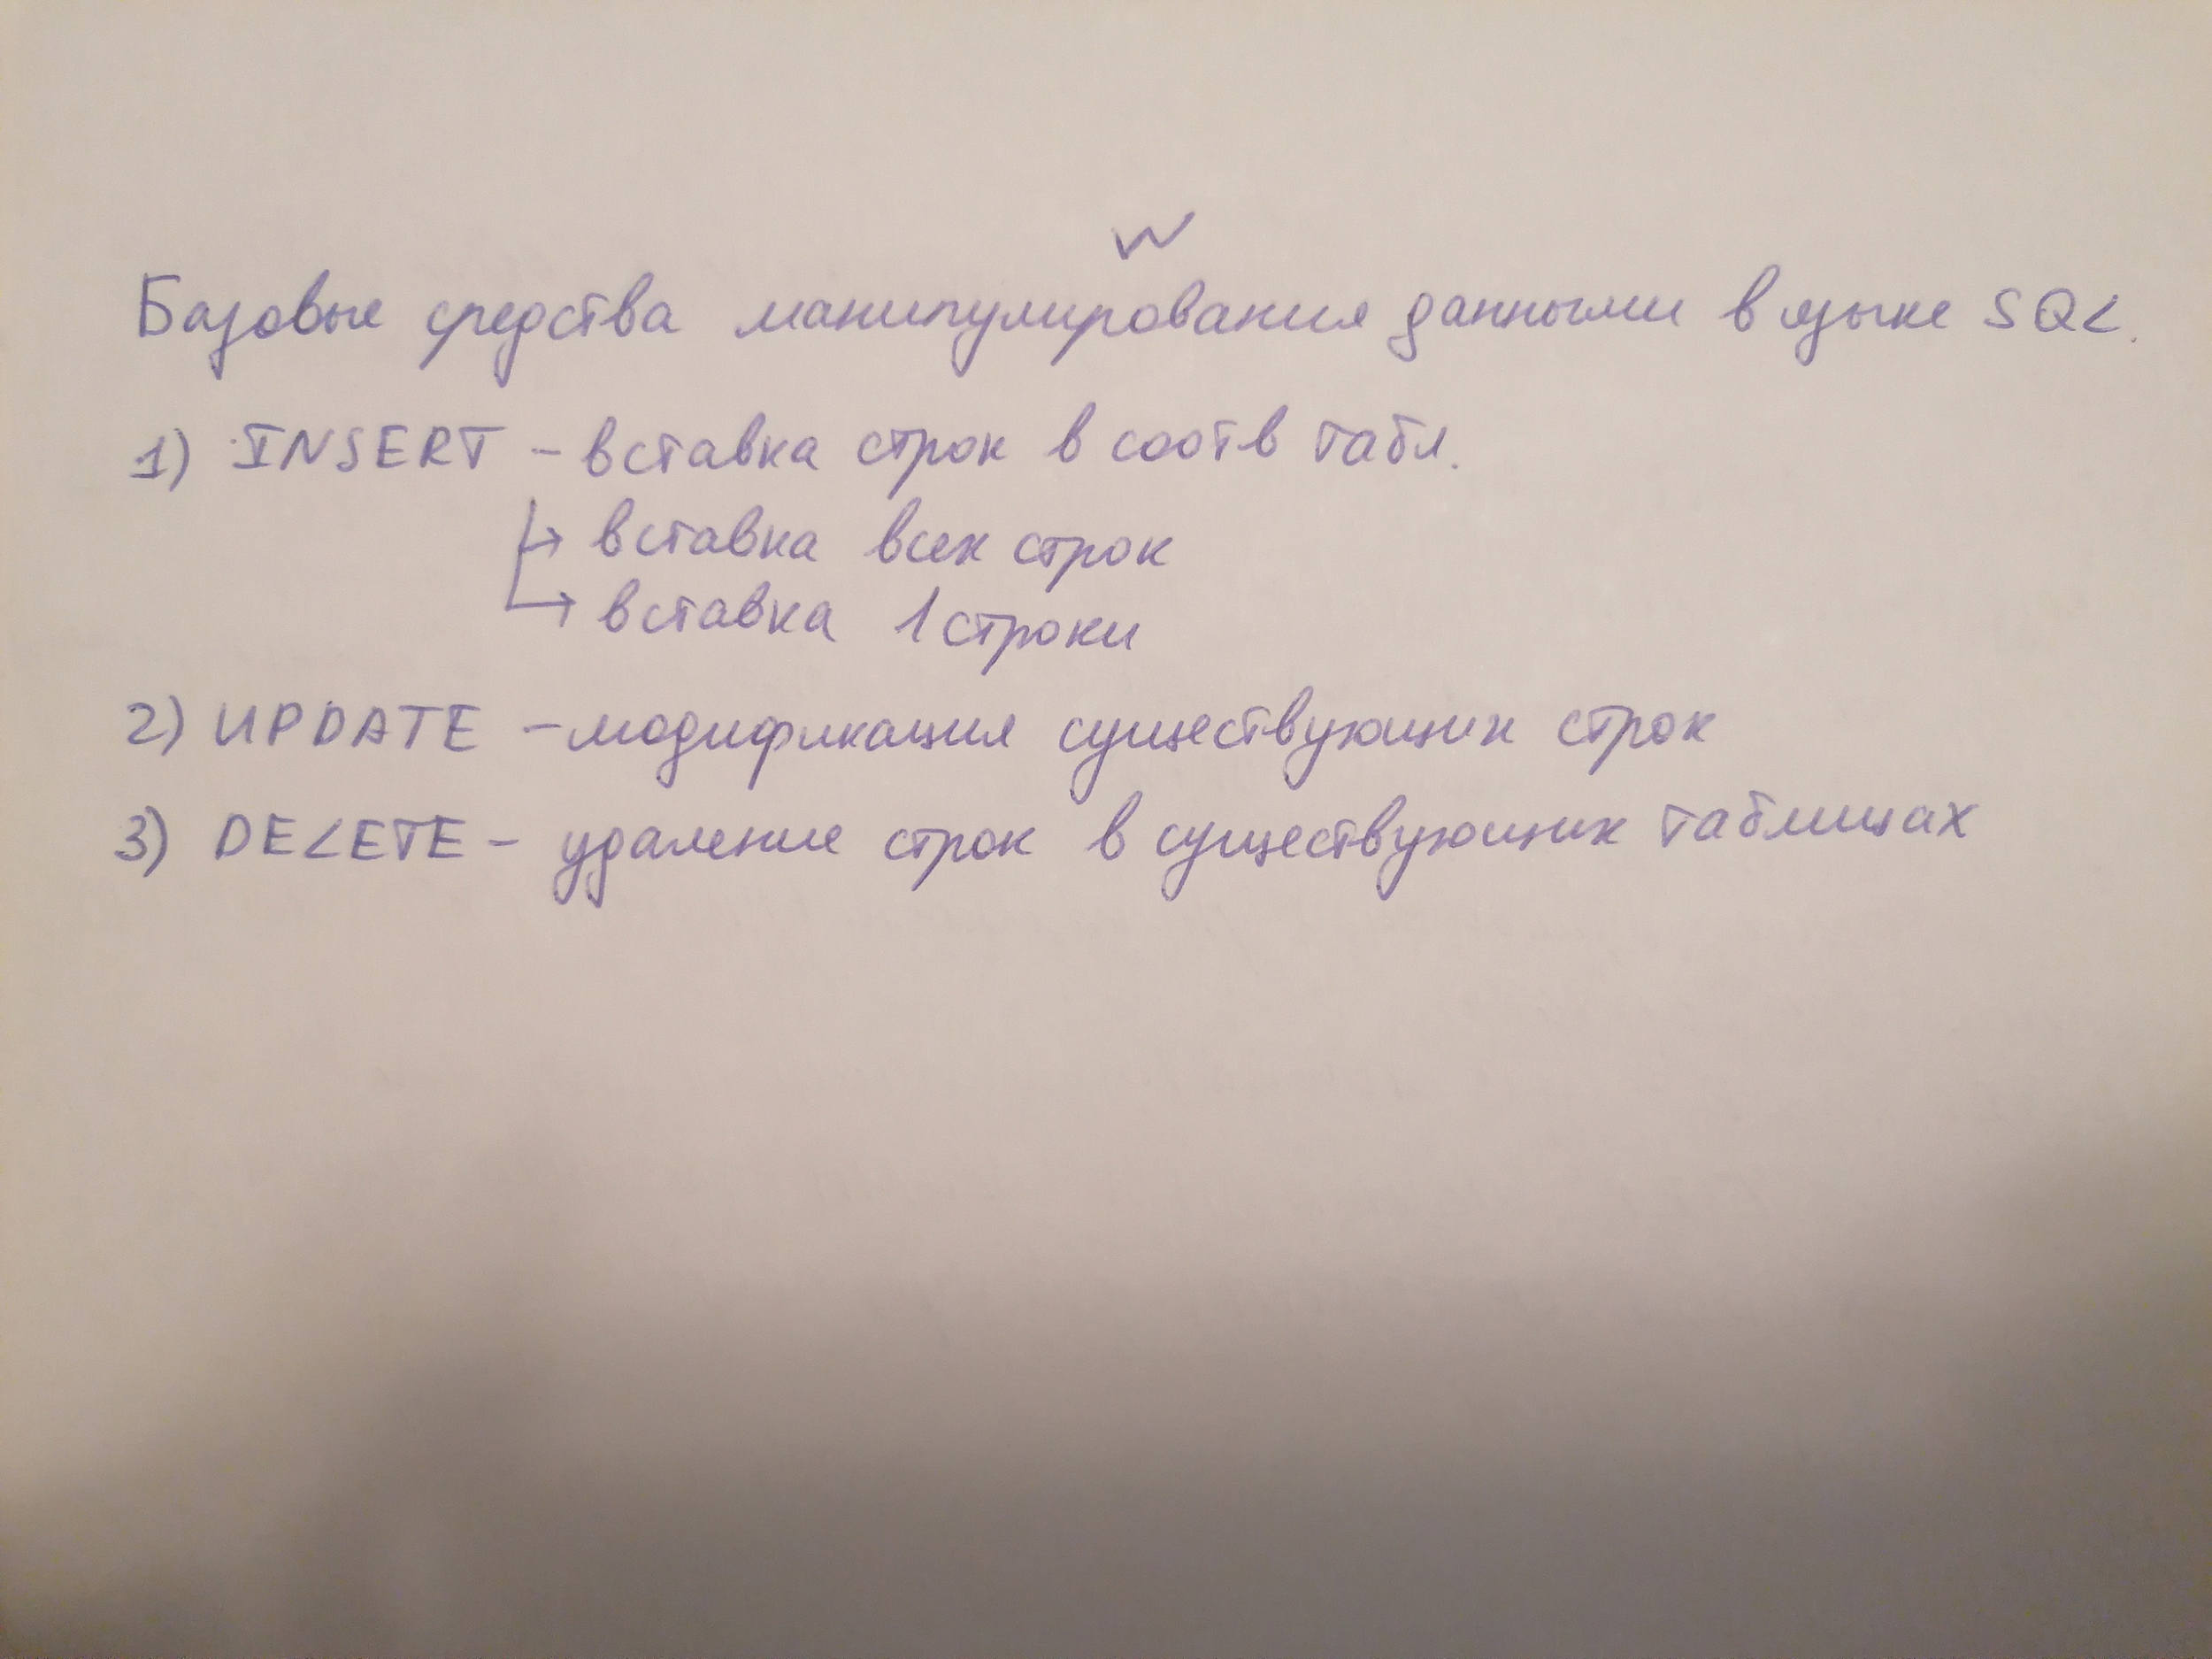 Базовые средства манипулирования данными в языке SQL.
1) INSERT - вставка строк в соотв табл.
вставка всех строк
вставка 1 строки
2) UPDATE - модификация существующих строк
3) DELETE - удаление строк в существующих таблицах